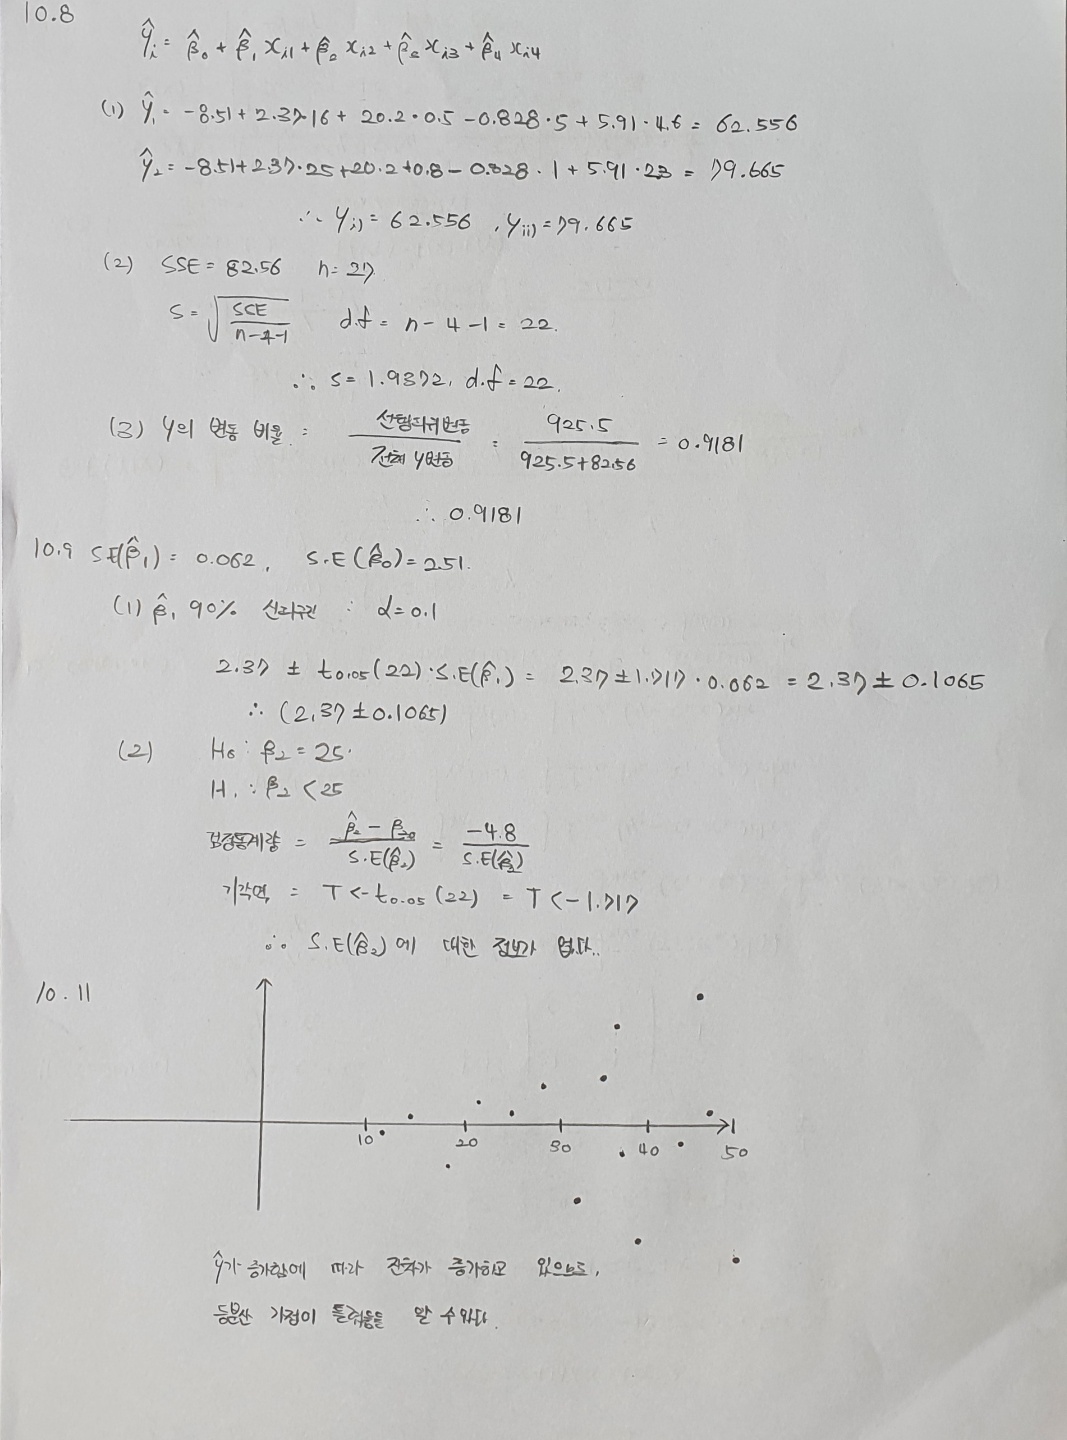 10.8
ŷᵢ = β̂₀ + β̂₁ xᵢ₁ + β̂₂ xᵢ₂ + β̂₃ xᵢ₃ + β̂₄ xᵢ₄
(1) ŷ₁ = -8.51 + 2.37·16 + 20.2·0.5 - 0.828·5 + 5.91·4.6 = 62.556
ŷ₂ = -8.51 + 2.37·25 + 20.2+0.8 - 0.828·1 + 5.91·2.3 = 79.665
∴ yᵢ₎ = 62.556 , yᵢᵢ₎ = 79.665
(2) SSE = 82.56 n = 27
S = √(SSE/(n-4-1)) d.f = n-4-1 = 22.
∴ S = 1.9372, d.f = 22.
(3) y의 변동 비율 : 선형회귀변동/전체 y변동 = 925.5/(925.5+82.56) = 0.9181
∴ 0.9181
10.9 S.E(β̂₁) = 0.062, S.E(β̂₀) = 2.51.
(1) β̂₁ 90% 신뢰구간 : α = 0.1
2.37 ± t₀.₀₅(22)·S.E(β̂₁) = 2.37 ± 1.717·0.062 = 2.37 ± 0.1065
∴ (2.37 ± 0.1065)
(2) H₀ : β₂ = 25.
H₁ : β₂ < 25
검정통계량 = (β̂₂ - β₂₀)/S.E(β̂₂) = -4.8/S.E(β̂₂)
기각역 = T < -t₀.₀₅(22) = T < -1.717
∴ S.E(β̂₂)에 대한 정보가 없다..
10.11
10 20 30 40 50
ŷ가 증가함에 따라 잔차가 증가하고 있으므로,
등분산 가정이 틀렸음을 알 수 있다.